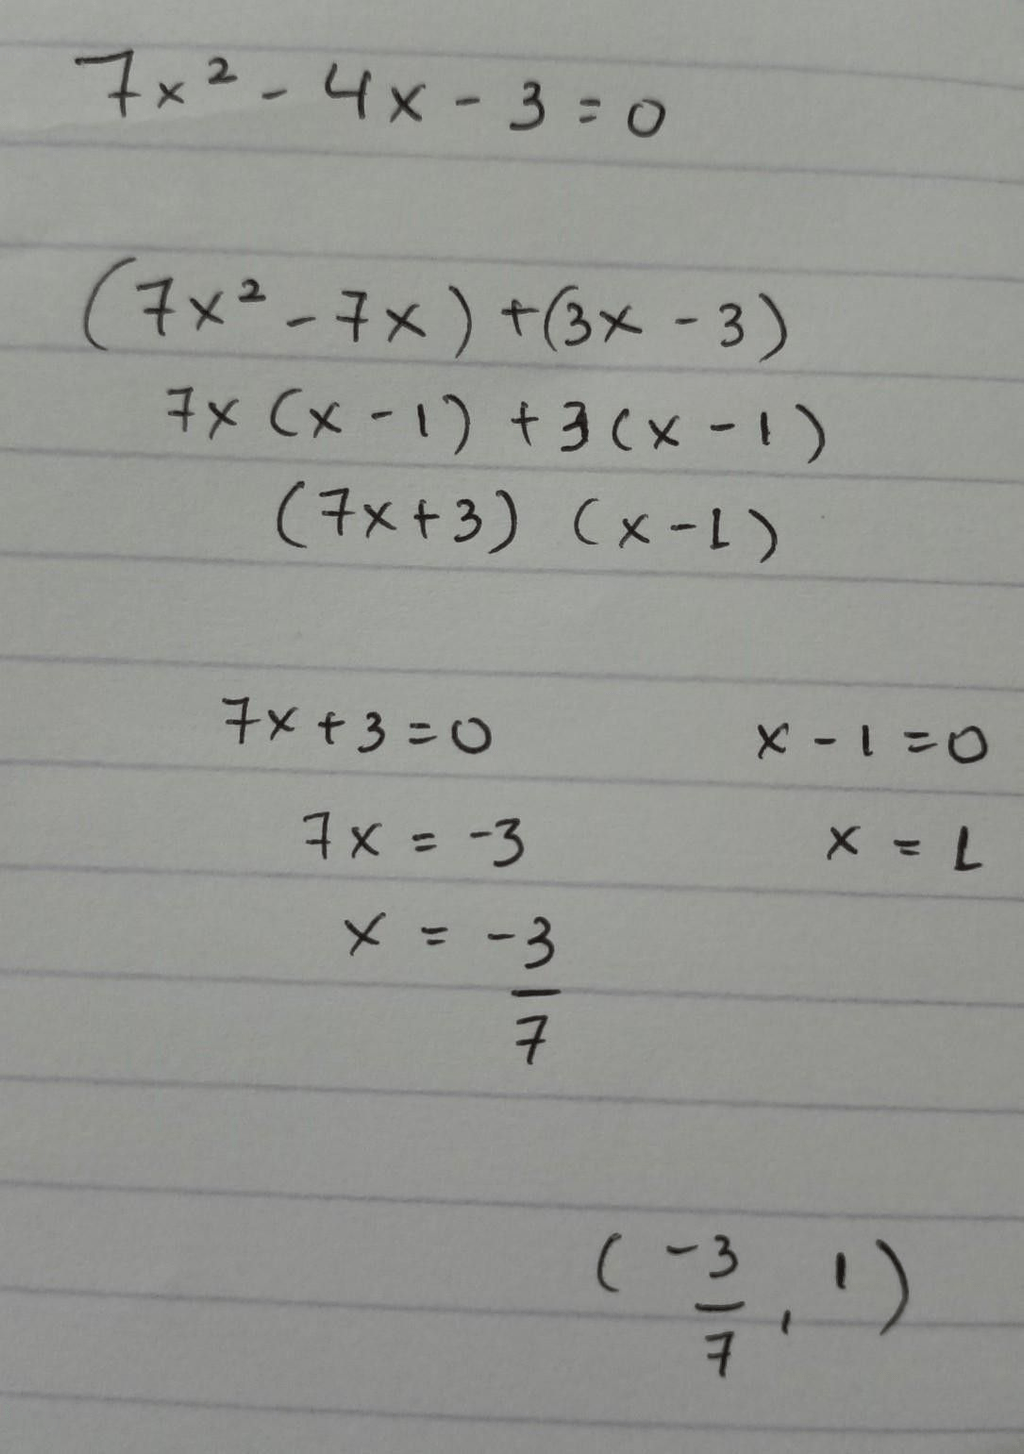 7x² - 4x - 3 = 0
(7x² - 7x) + (3x - 3)
7x (x - 1) + 3 (x - 1)
(7x + 3) (x - 1)
7x + 3 = 0 x - 1 = 0
7x = -3 x = 1
x = -3/7
(-3/7, 1)